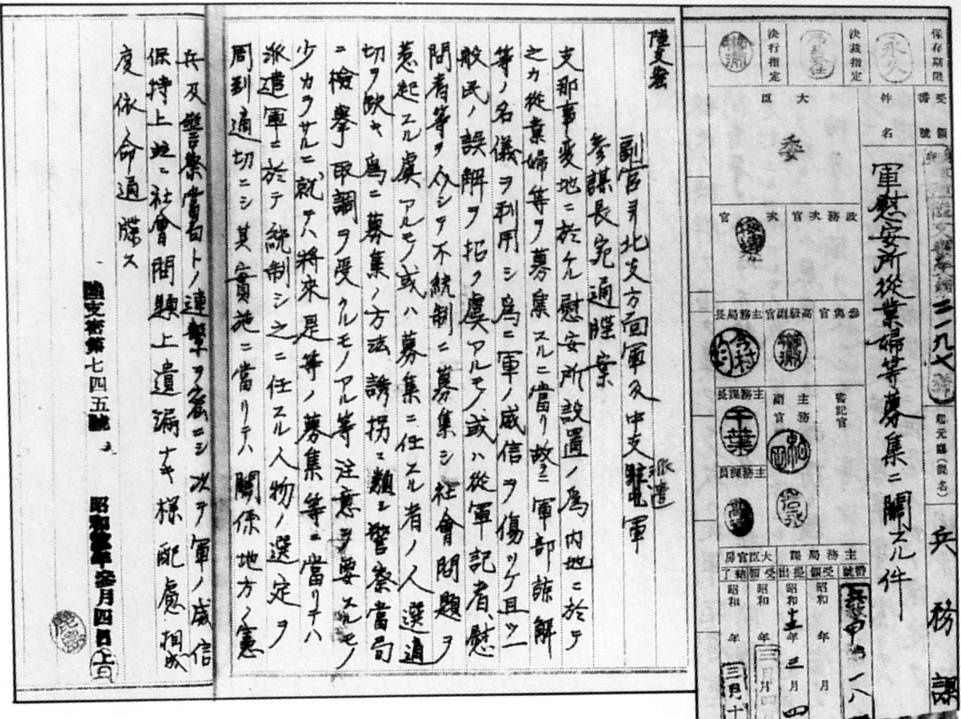 保存期限
永久
決裁指定
決行指定
受領番號
件名
軍慰安所從業婦等募集ニ關スル件
大臣
委
政務次官
次官
參與官
高級副官
主務局長
今村
主務副官
主務課長
千葉
主務課員
書記官
起元廳(課名)
兵務課
主務局課
大臣官房
番號
受領
提出
受領
結了
昭和
年
月
陸支密
副官ヨリ北支方面軍及中支派遣軍
參謀長宛通牒案
支那事變地ニ於ケル慰安所設置ノ爲内地ニ於テ
之カ從業婦等ヲ募集スルニ當リ故ラニ軍部諒解
等ノ名儀ヲ利用シ爲ニ軍ノ威信ヲ傷ツケ且ツ一
般民ノ誤解ヲ招ク虞アルモノ或ハ從軍記者、慰
問者等ヲ介シテ不統制ニ募集シ社會問題ヲ
惹起スル虞アルモノ或ハ募集ニ任スル者ノ人選適
切ヲ欠キ爲ニ募集ノ方法誘拐ニ類シ警察當局
ニ檢擧取調ヲ受クルモノアル等注意ヲ要スルモノ
少カラサルニ就テハ將來是等ノ募集等ニ當リテハ
派遣軍ニ於テ統制シ之ニ任スル人物ノ選定ヲ
周到適切ニシ其實施ニ當リテハ關係地方ノ憲
兵及警察當局トノ連繫ヲ密ニシ次テ軍ノ威信
保持上並ニ社會問題上遺漏ナキ樣配慮相成
度依命通牒ス
陸支密第七四五號
昭和拾參年參月四日